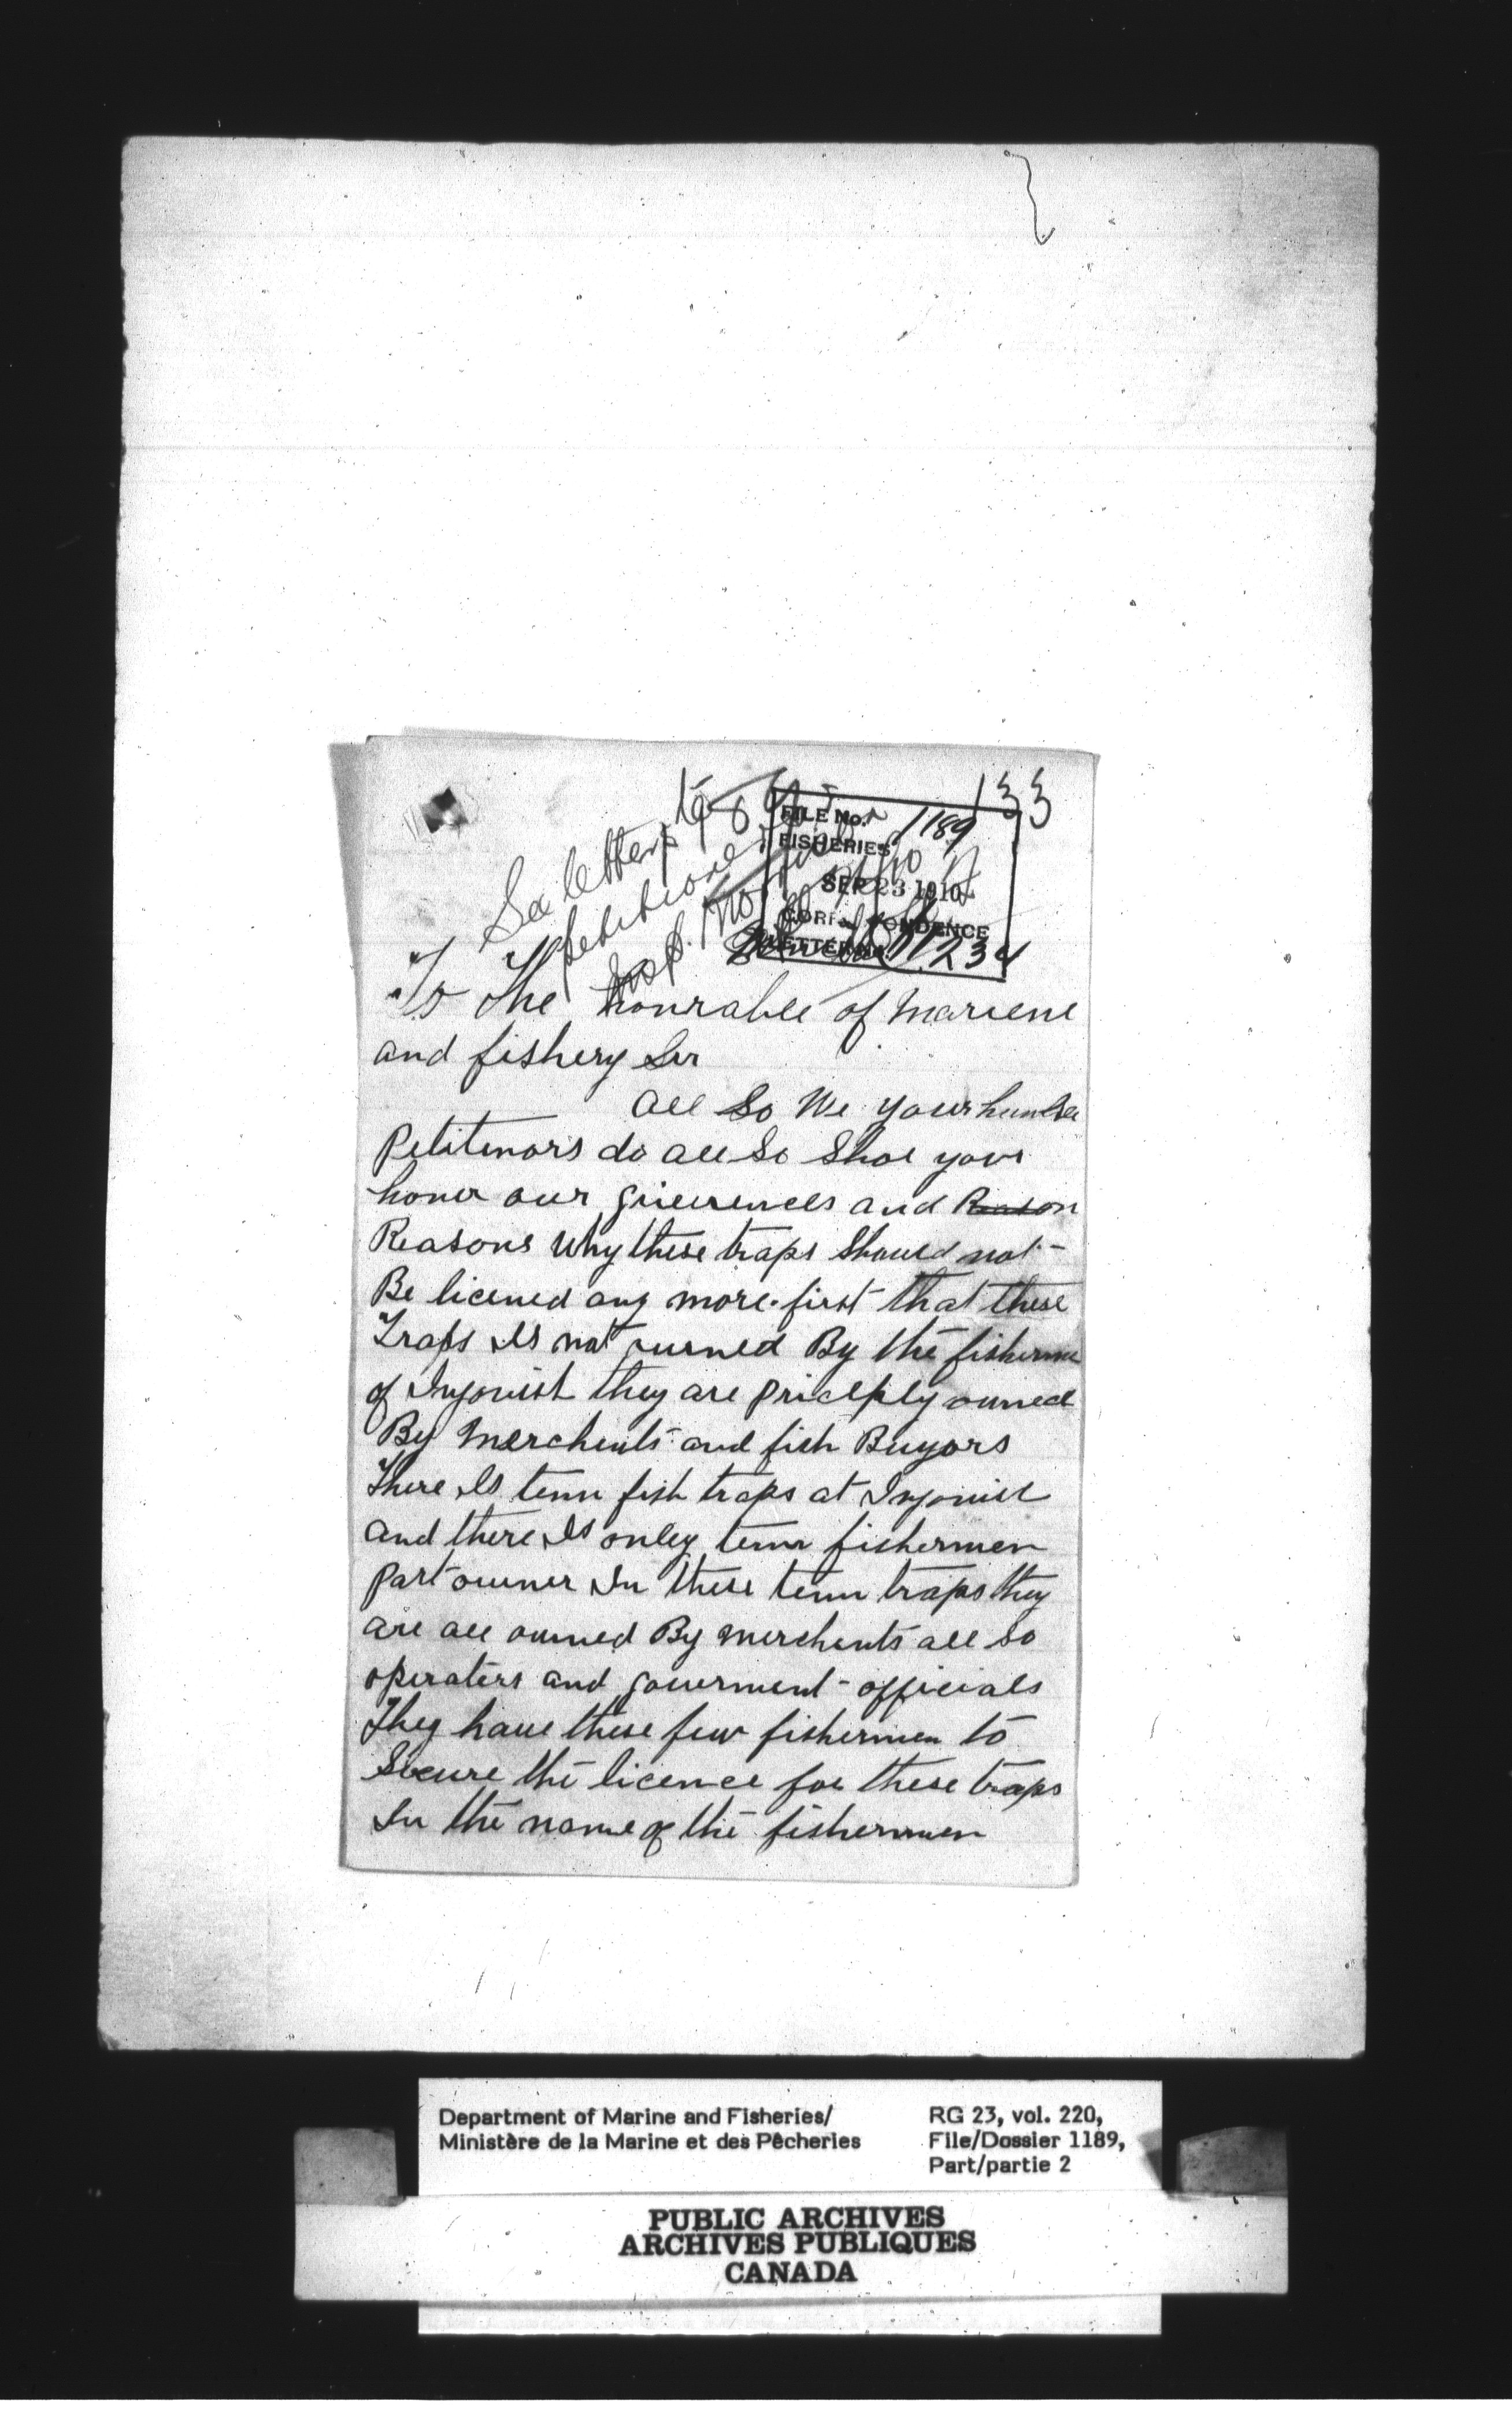 133
See letters to
petitioners
Insp.
FILE No. 1189
FISHERIES
SEP 23 1910
CORRESPONDENCE
LETTER No. 11234
To The honrable of Mariene
and fishery Sir
all So We your humble
Petitenors do all So Shoe your
honer our grieuences and Reason
Reasons Why these traps Should not
Be licened any more. first that these
Traps Is not owned By the fishermen
of Ingonish they are priceply owned
By Merchents and fish Buyors
There Is tenn fish traps at Ingonish
and there Is onley tenn fishermen
part owner In these tenn traps they
are all owned By merchents all so
operaters and gouerment officials
They haue these few fishermen to
Secure the licence for these traps
In the name of the fishermen
Department of Marine and Fisheries/
Ministère de la Marine et des Pêcheries
RG 23, vol. 220,
File/Dossier 1189,
Part/partie 2
PUBLIC ARCHIVES
ARCHIVES PUBLIQUES
CANADA